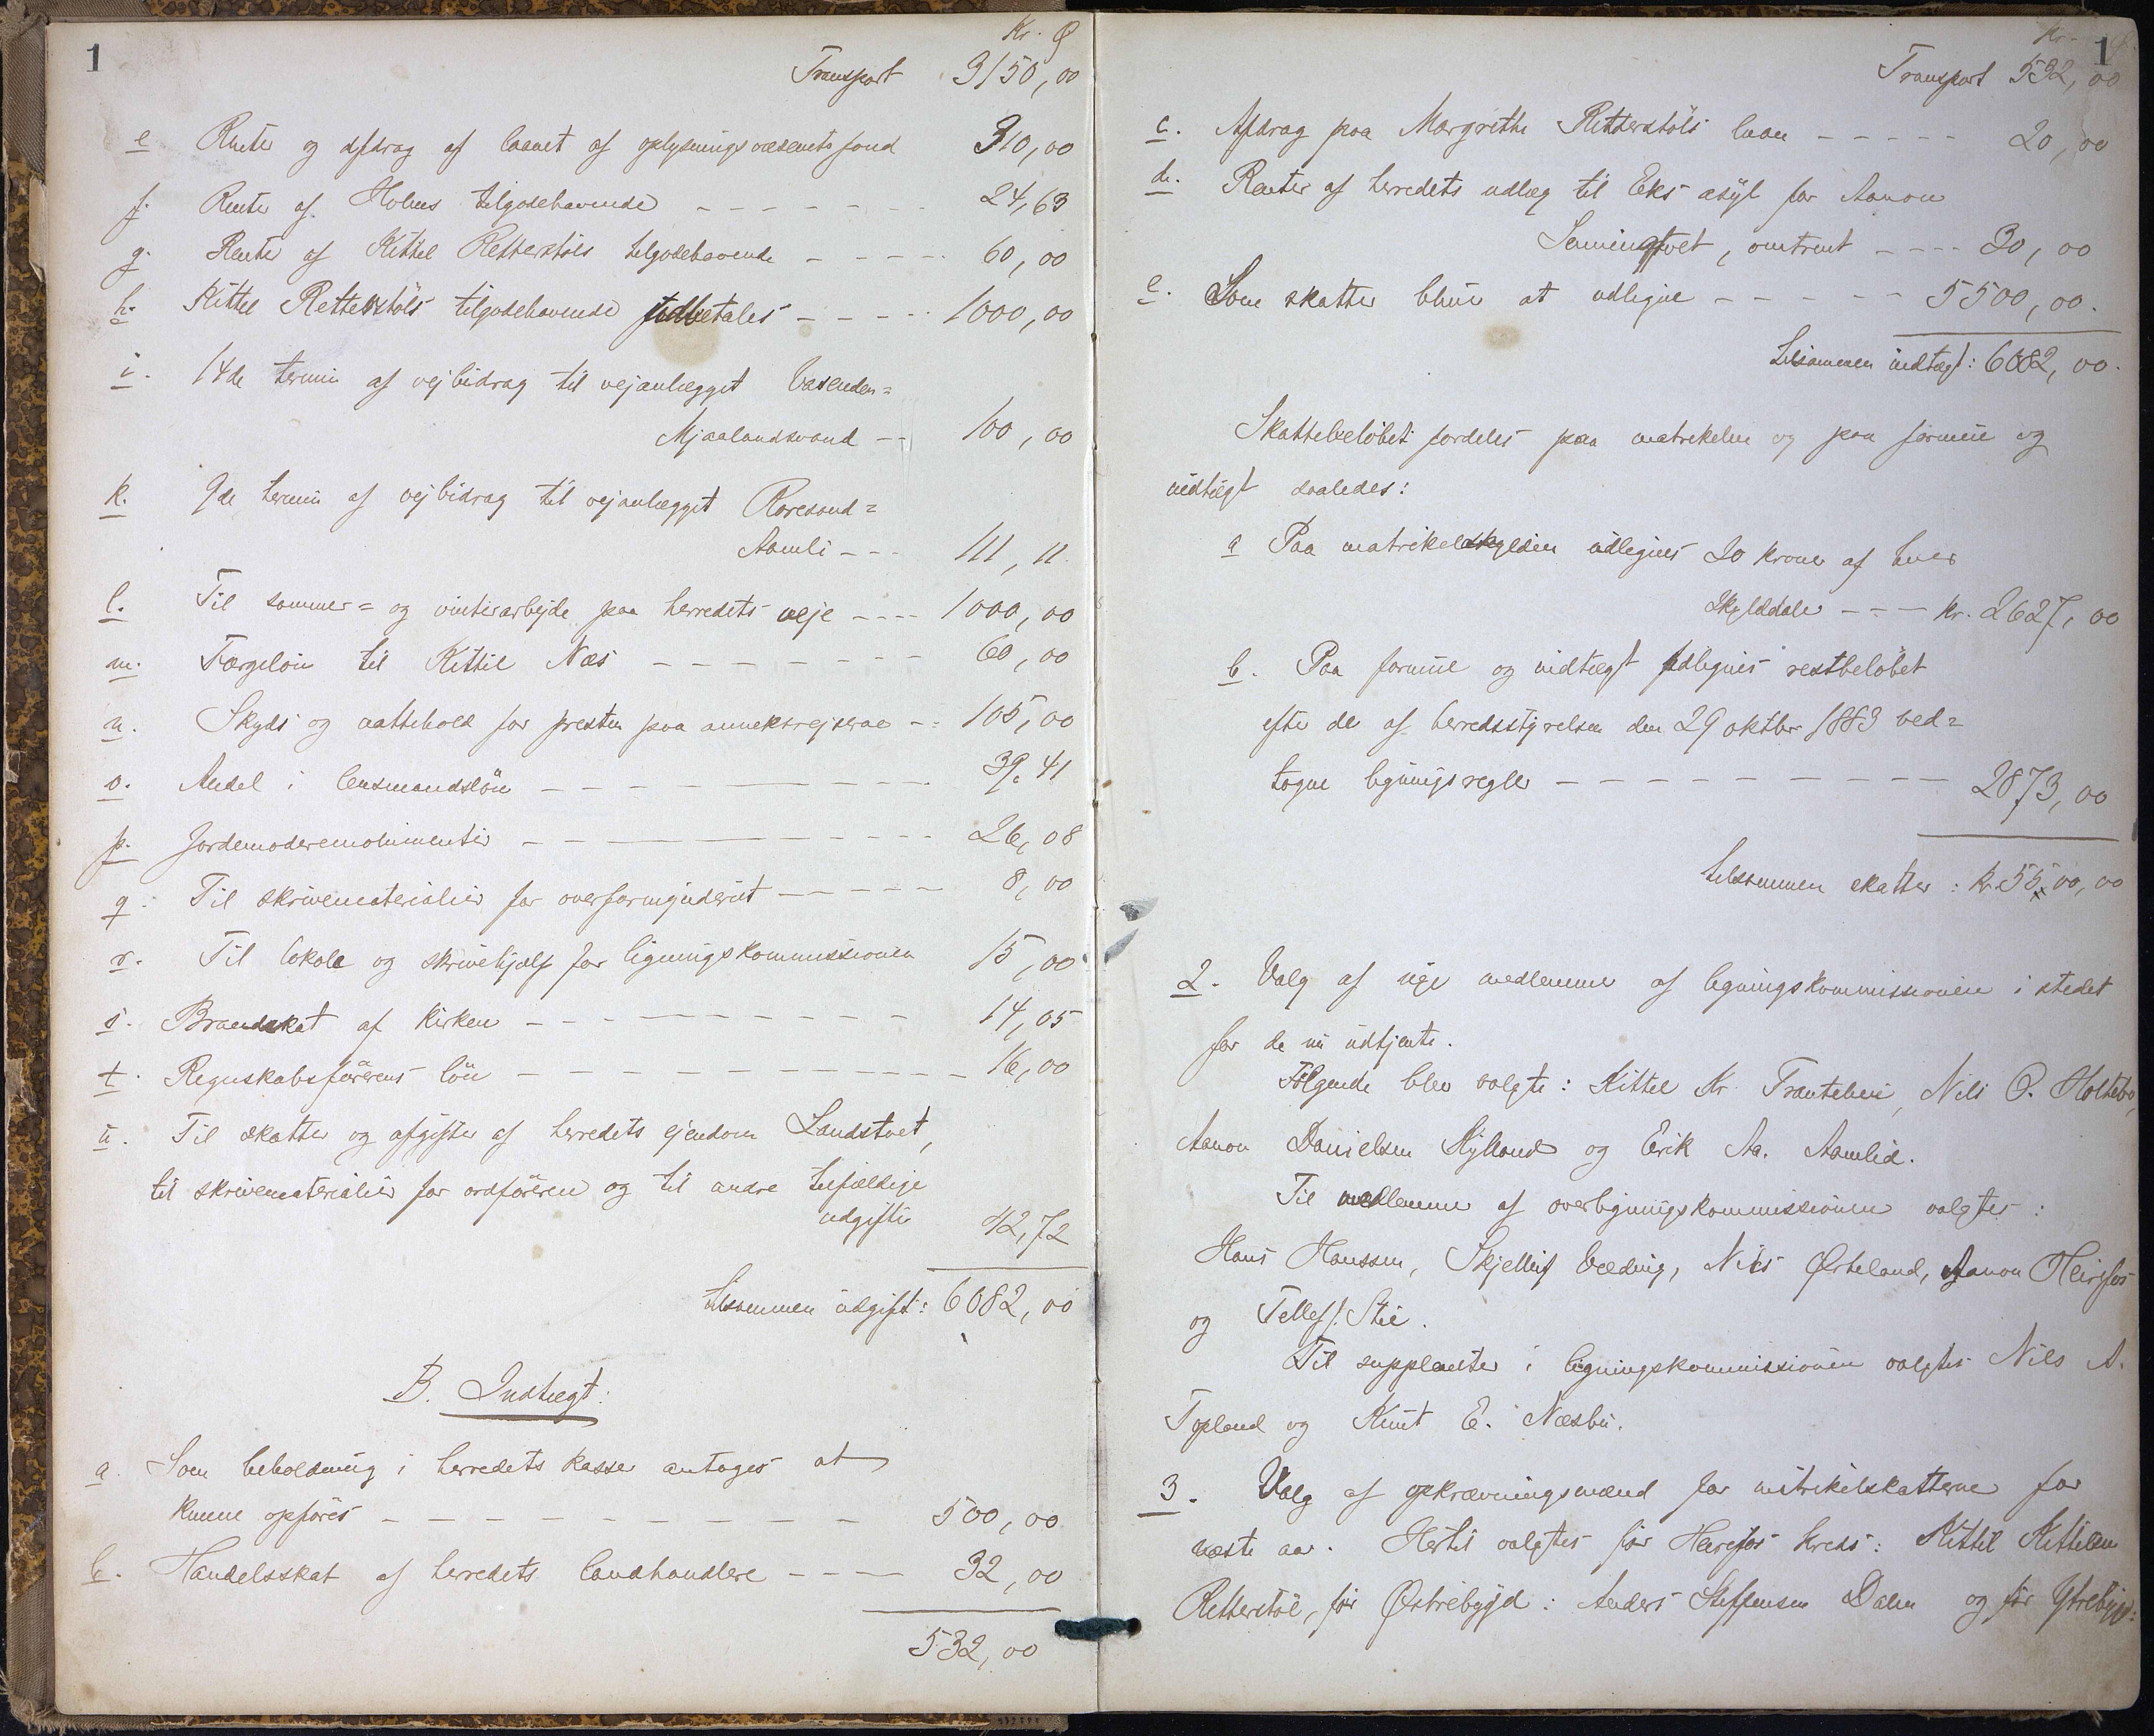 1
Kr. Ø
Transport 3150,00
e Renter og afdrag af laanet af oplysningsvæsenets fond 310,00
f. Renter af Holms tilgodehavende - - - - - - - 24,63
g. Renter af Kittel Retterstöls tilgodehavende - - - - - 60,00
h. Kittel Retterstöls tilgodehavende udbetales - - - - 1000,00
i. 14de termin af vejbidrag til vejanlægget Vasenden=
Mjaalandsvand -- 100,00
k. 9de termin af vejbidrag til vejanlægget Roresand=
Aamli - - - 111,11
l. Til sommer= og vinterarbejde paa herredets veje ---- 1000,00
m. Færgelön til Kittil Næs - - - - - - - - 60,00
n. Skyds og nattehold for presten paa anneksrejserne - - 105,00
o. Andel i lensmandslön - - - - - - - - - 39.41
p. Jordemoderemolumenter - - - - - - - - 26,08
q. Til skrivematerialier for overformynderiet - - - - - - 8,00
r. Til lokale og skrivehjælp for ligningskommissionen 15,00
s. Brandskat af kirken - - - - - - - - - 14,05
t. Regnskabsförerens lön - - - - - - - - - - - 16,00
u. Til skatter og afgifter af herredets ejendom Landstvet,
til skrivematerialier for ordföreren og til andre tilfældige
udgifter 42,72
tilsammen udgift: 6082,00
B. Indtægt:
a. Som beholdning i herredets kasse antages at
kunne opföres - - - - - - - - - - 500,00
b. Handelsskat af herredets landhandlere - - - - 32,00
532,00
1
Kr. Ø
Transport 532,00
c. Afdrag paa Margrethe Retterstöls laan - - - - - 20,00
d. Renter af herredets udlæg til Eks asyl for Aanon
Senningtvet, omtrent - - - - 30,00
e. Som skatter bliver at udligne - - - - - - 5500,00.
tilsammen indtægt: 6082,00.
Skattebelöbet fordeles paa matrikelen og paa formue og
indtægt saaledes:
a Paa matrikelskylden udlignes 20 kroner af hver
skylddaler - - - kr. 2627,00
b. Paa formue og indtægt udlignes restbelöbet
efter de af herredsstyrelsen den 29 oktbr 1883 ved=
tagne ligningsregler - - - - - - - - - - 2873,00
tilsammen skatter: kr. 5500,00
2. Valg af nye medlemmer af ligningskommissionen i stedet
for de nu udtjente.
Fölgende blev valgte: Kittel Kr Trantehei, Nils O. Holtebo,
Aanon Danielsen Rylland og Erik Aa. Aamlid.
Til medlemmer af overligningskommissionen valgtes:
Hans Hanssen, Skjelluf Væding, Nils Østeland, Aanon Heirefos
og Tellef J. Stie.
Til suppleanter i ligningskommissionen valgtes Nils A.
Topland og Knut E. Næsbu.
3. Valg af opkrævningsmænd for matrikelskatterne for
næste aar. Hertil valgtes for Heirefos kreds: Kittil Kittilsen
Retterstöl, for Østrebygd: Anders Steffensen Dalen og for Ytrebygd: